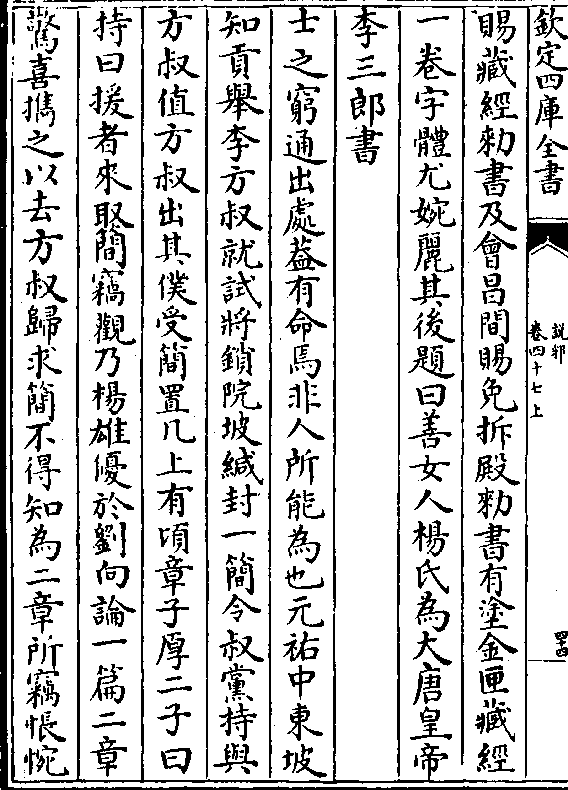 欽定四庫全書
說郛
卷四十七上
四十四
賜藏經勑書及會昌間賜免拆殿勑書有塗金匣藏經
一卷字體尤婉麗其後題曰善女人楊氏為大唐皇帝
李三郎書
士之窮通出處葢有命焉非人所能為也元祐中東坡
知貢舉李方叔就試將鎖院坡緘封一簡令叔黨持與
方叔值方叔出其僕受簡置几上有頃章子厚二子曰
持曰援者來取簡竊觀乃楊雄優於劉向論一篇二章
驚喜擕之以去方叔歸求簡不得知為二章所竊悵惋